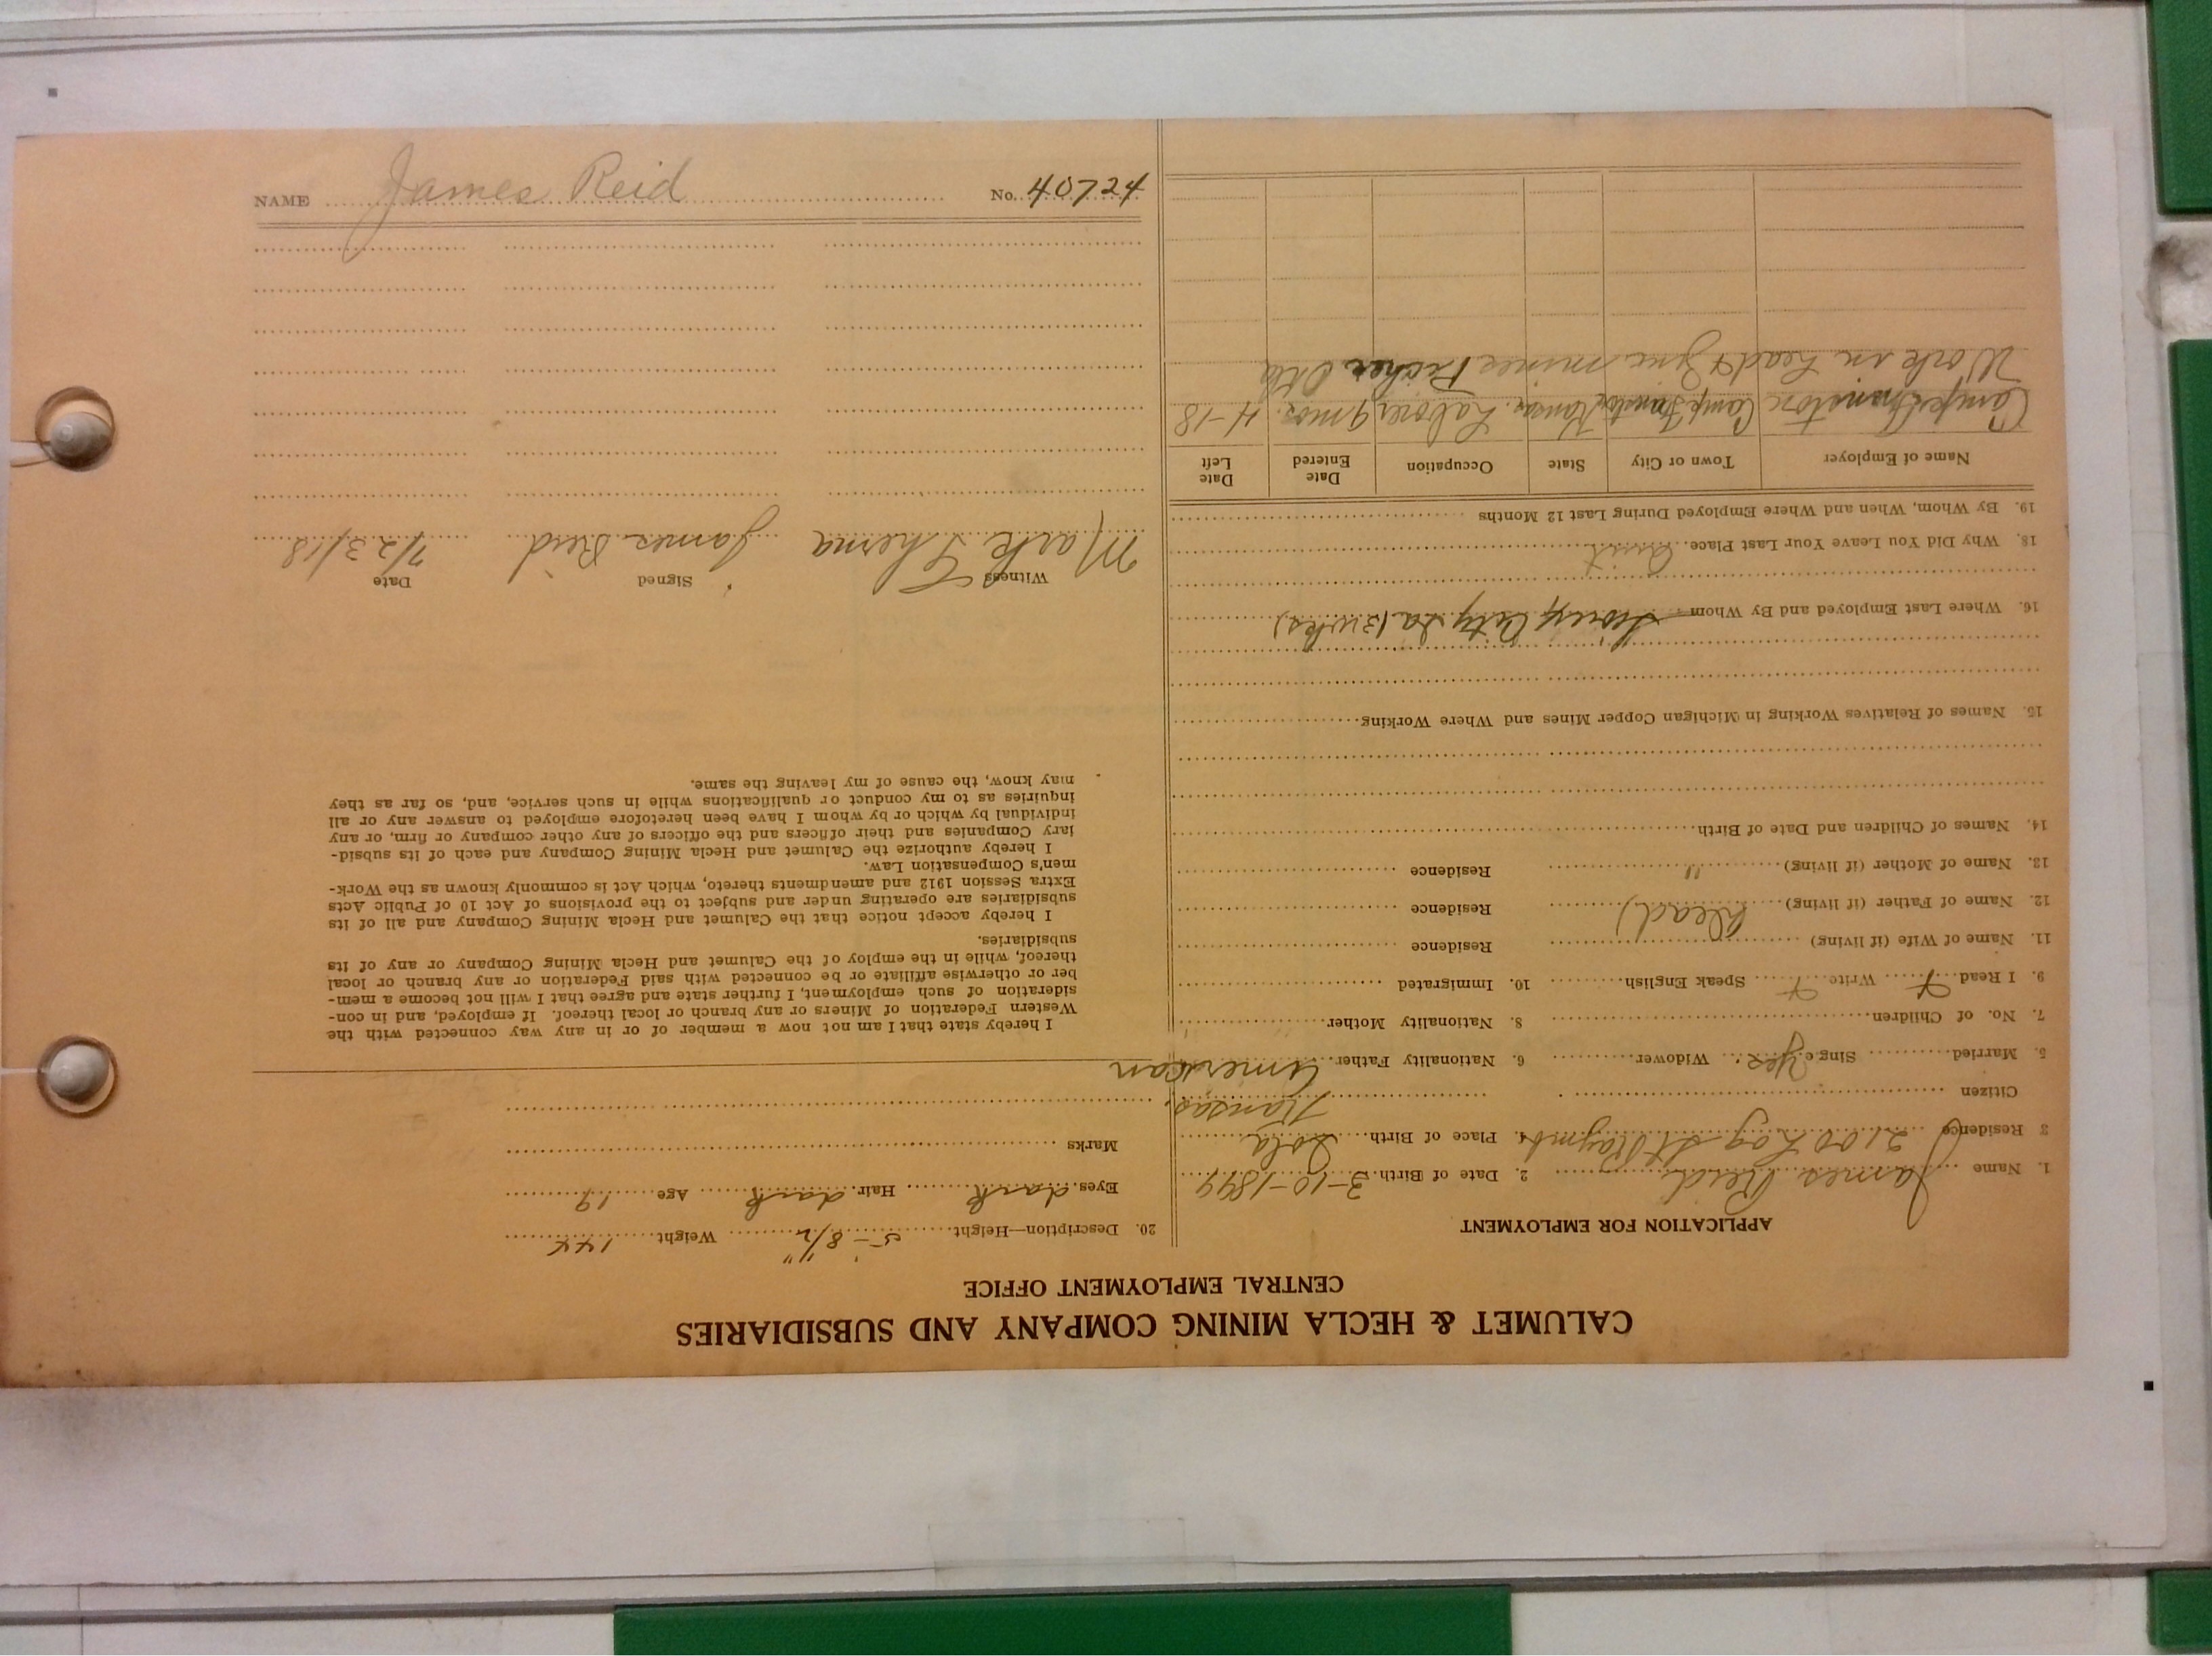 NAME James Reid No. 40724
CALUMET & HECLA MINING COMPANY AND SUBSIDIARIES
CENTRAL EMPLOYMENT OFFICE
APPLICATION FOR EMPLOYMENT
1. Name James Reid 2. Date of Birth. 3-10-1899
3 Residence 2100 St 4. Place of Birth. Iola
Kansas.
Citizen
5. Married Single Yes. Widower 6. Nationality Father. American
7. No. of Children 8. Nationality Mother
9. I Read Write Speak English 10. Immigrated
11. Name of Wife (if living) Residence
12. Name of Father (if living) (Dead) Residence
13. Name of Mother (if living) " Residence
14. Names of Children and Date of Birth
15. Names of Relatives Working in Michigan Copper Mines and Where Working
16. Where Last Employed and By Whom City Ia (3 wks)
18. Why Did You Leave Your Last Place. Quit
19. By Whom, When and Where Employed During Last 12 Months
Name of Employer Town or City State Occupation Date Entered Date Left
Camp Funston Camp Funston Kansas. Laborer 9 mos. 4-18
Work in Lead & Zinc mines Picher Okla
20. Description—Height 5'-8 1/2" Weight 144
Eyes. dark Hair. dark Age 19
Marks
I hereby state that I am not now a member of or in any way connected with the
Western Federation of Miners or any branch or local thereof. If employed, and in con-
sideration of such employment, I further state and agree that I will not become a mem-
ber or otherwise affiliate or be connected with said Federation or any branch or local
thereof, while in the employ of the Calumet and Hecla Mining Company or any of its
subsidiaries.
I hereby accept notice that the Calumet and Hecla Mining Company and all of its
subsidiaries are operating under and subject to the provisions of Act 10 of Public Acts
Extra Session 1912 and amendments thereto, which Act is commonly known as the Work-
men's Compensation Law.
I hereby authorize the Calumet and Hecla Mining Company and each of its subsid-
iary Companies and their officers and the officers of any other company or firm, or any
individual by which or by whom I have been heretofore employed to answer any or all
inquiries as to my conduct or qualifications while in such service, and, so far as they
may know, the cause of my leaving the same.
Witness Signed Date
Mark James Reid 7/23/18